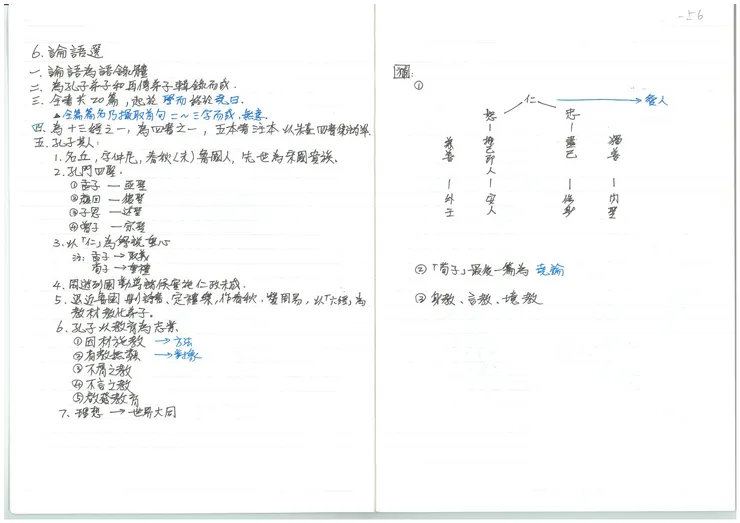 -56
6. 論語選
一. 論語為語錄體
二. 為孔子弟子和再傳弟子輯錄而成.
三. 全書共20篇, 起於 學而 終於 堯曰.
全篇篇名乃擷取首句二~三字而成, 無意.
四. 為十三經之一, 為四書之一,
五. 孔子其人:
1. 名丘, 字仲尼, 春秋(末)魯國人, 先世為宋國貴族.
2. 孔門四聖:
①孟子 — 亞聖
②顏回 — 復聖
③子思 — 述聖
④曾子 — 宗聖
3. 以「仁」為學說重心
注: 孟子 → 取義
荀子 → 重禮
4. 周遊列國勸為諸侯實施仁政未成.
5. 退返魯國刪詩書、定禮樂, 作春秋. 贊周易, 以「六經」為
教材教化弟子.
6. 孔子以教育為志業.
①因材施教 → 方法
②有教無類 → 對象
③不屑之教
④不言之教
⑤啟發教育
7. 理想 → 世界大同
補:
①
仁 → 愛人
恕 — 推己所人 — 安人
忠 — 盡己 — 修身
兼善 — 外王
獨善 — 內聖
②「荀子」最後一篇為 堯論
③身教、言教、境教